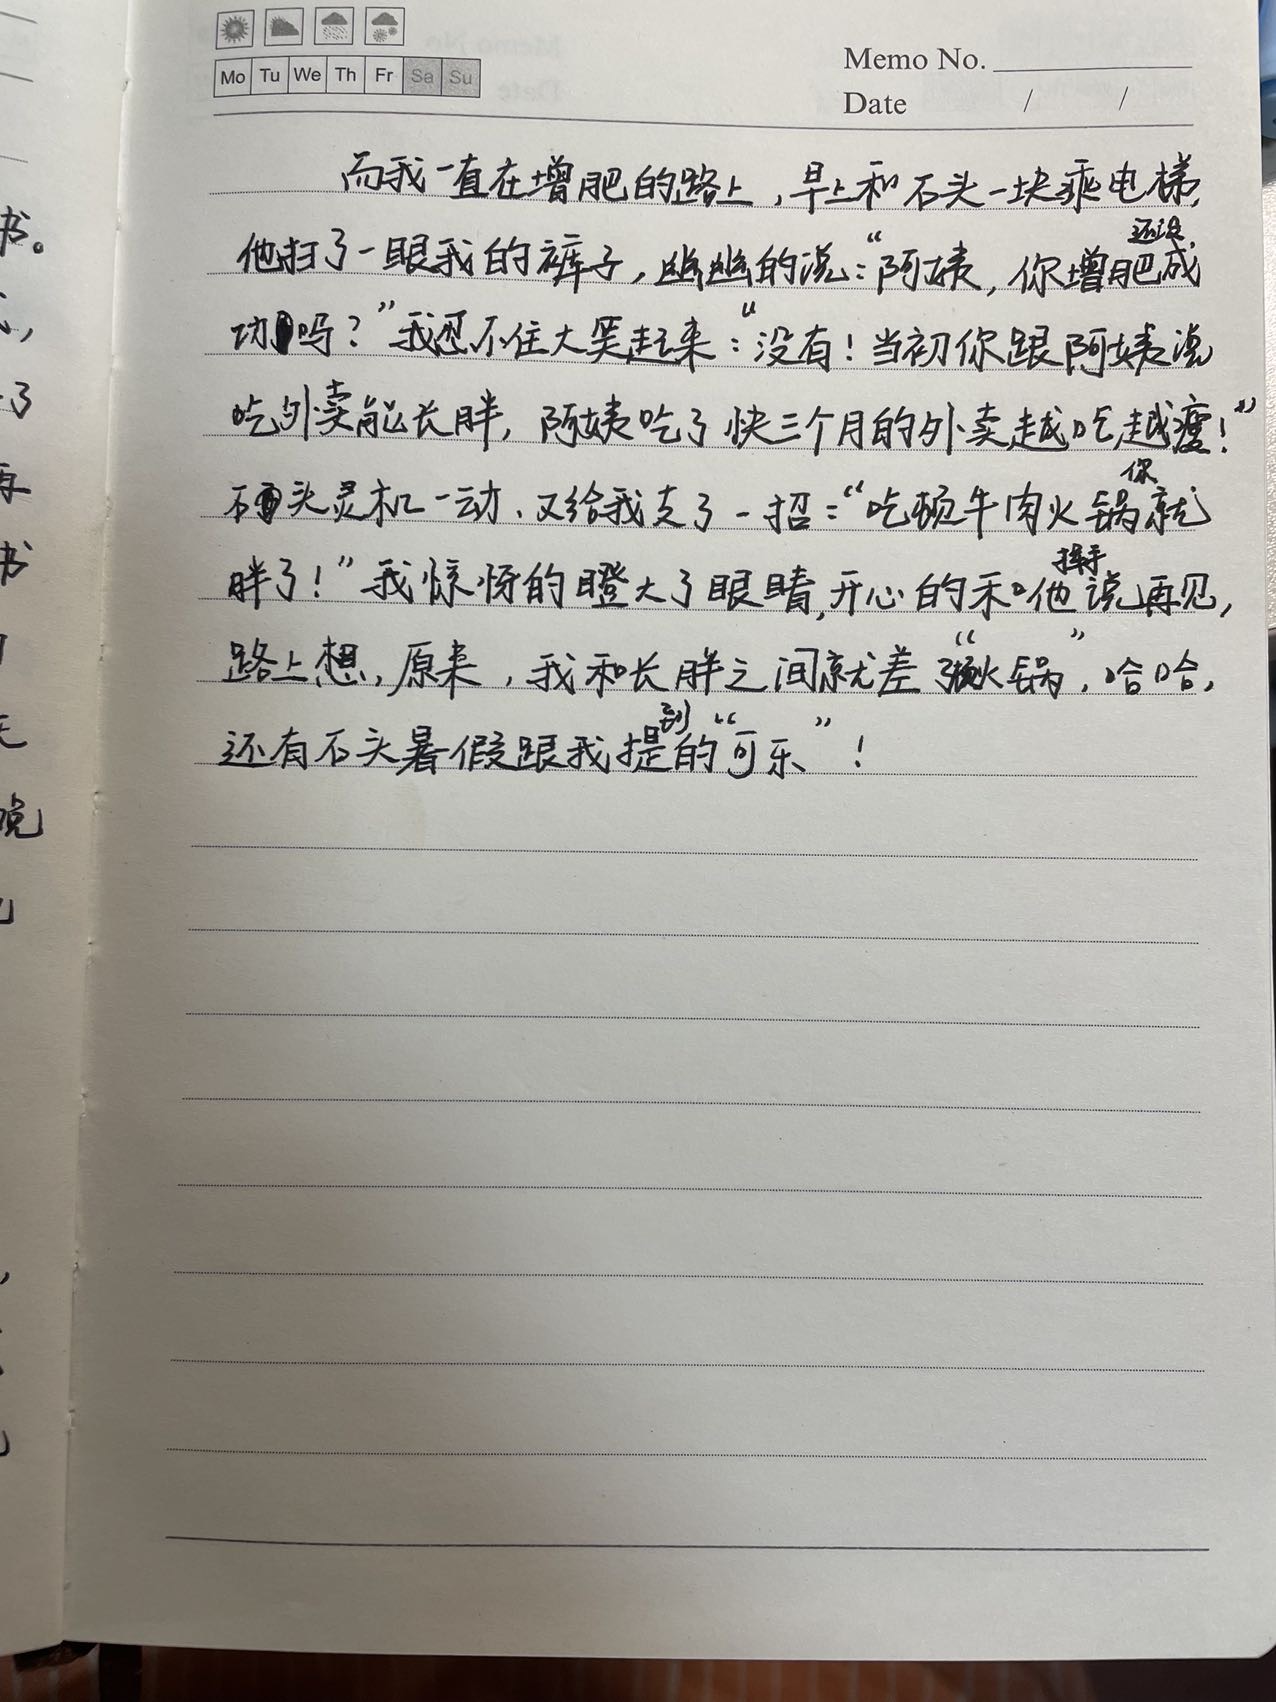 Mo Tu We Th Fr Sa Su
Memo No.
Date / /
而我一直在增肥的路上,早上和石头一块乘电梯,
他扫了一眼我的裤子,幽幽的说:“阿姨,你增肥还没成
功吗?”我忍不住大笑起来:“没有!当初你跟阿姨说
吃外卖能长胖,阿姨吃了快三个月的外卖越吃越瘦!”
石头灵机一动、又给我支了一招:“吃顿牛肉火锅你就
胖了!”我惊讶的瞪大了眼睛,开心的和他挥手说再见,
路上想,原来,我和长胖之间就差“顿火锅”,哈哈,
还有石头暑假跟我提到的“可乐”!
书。
了
再
书
无
说